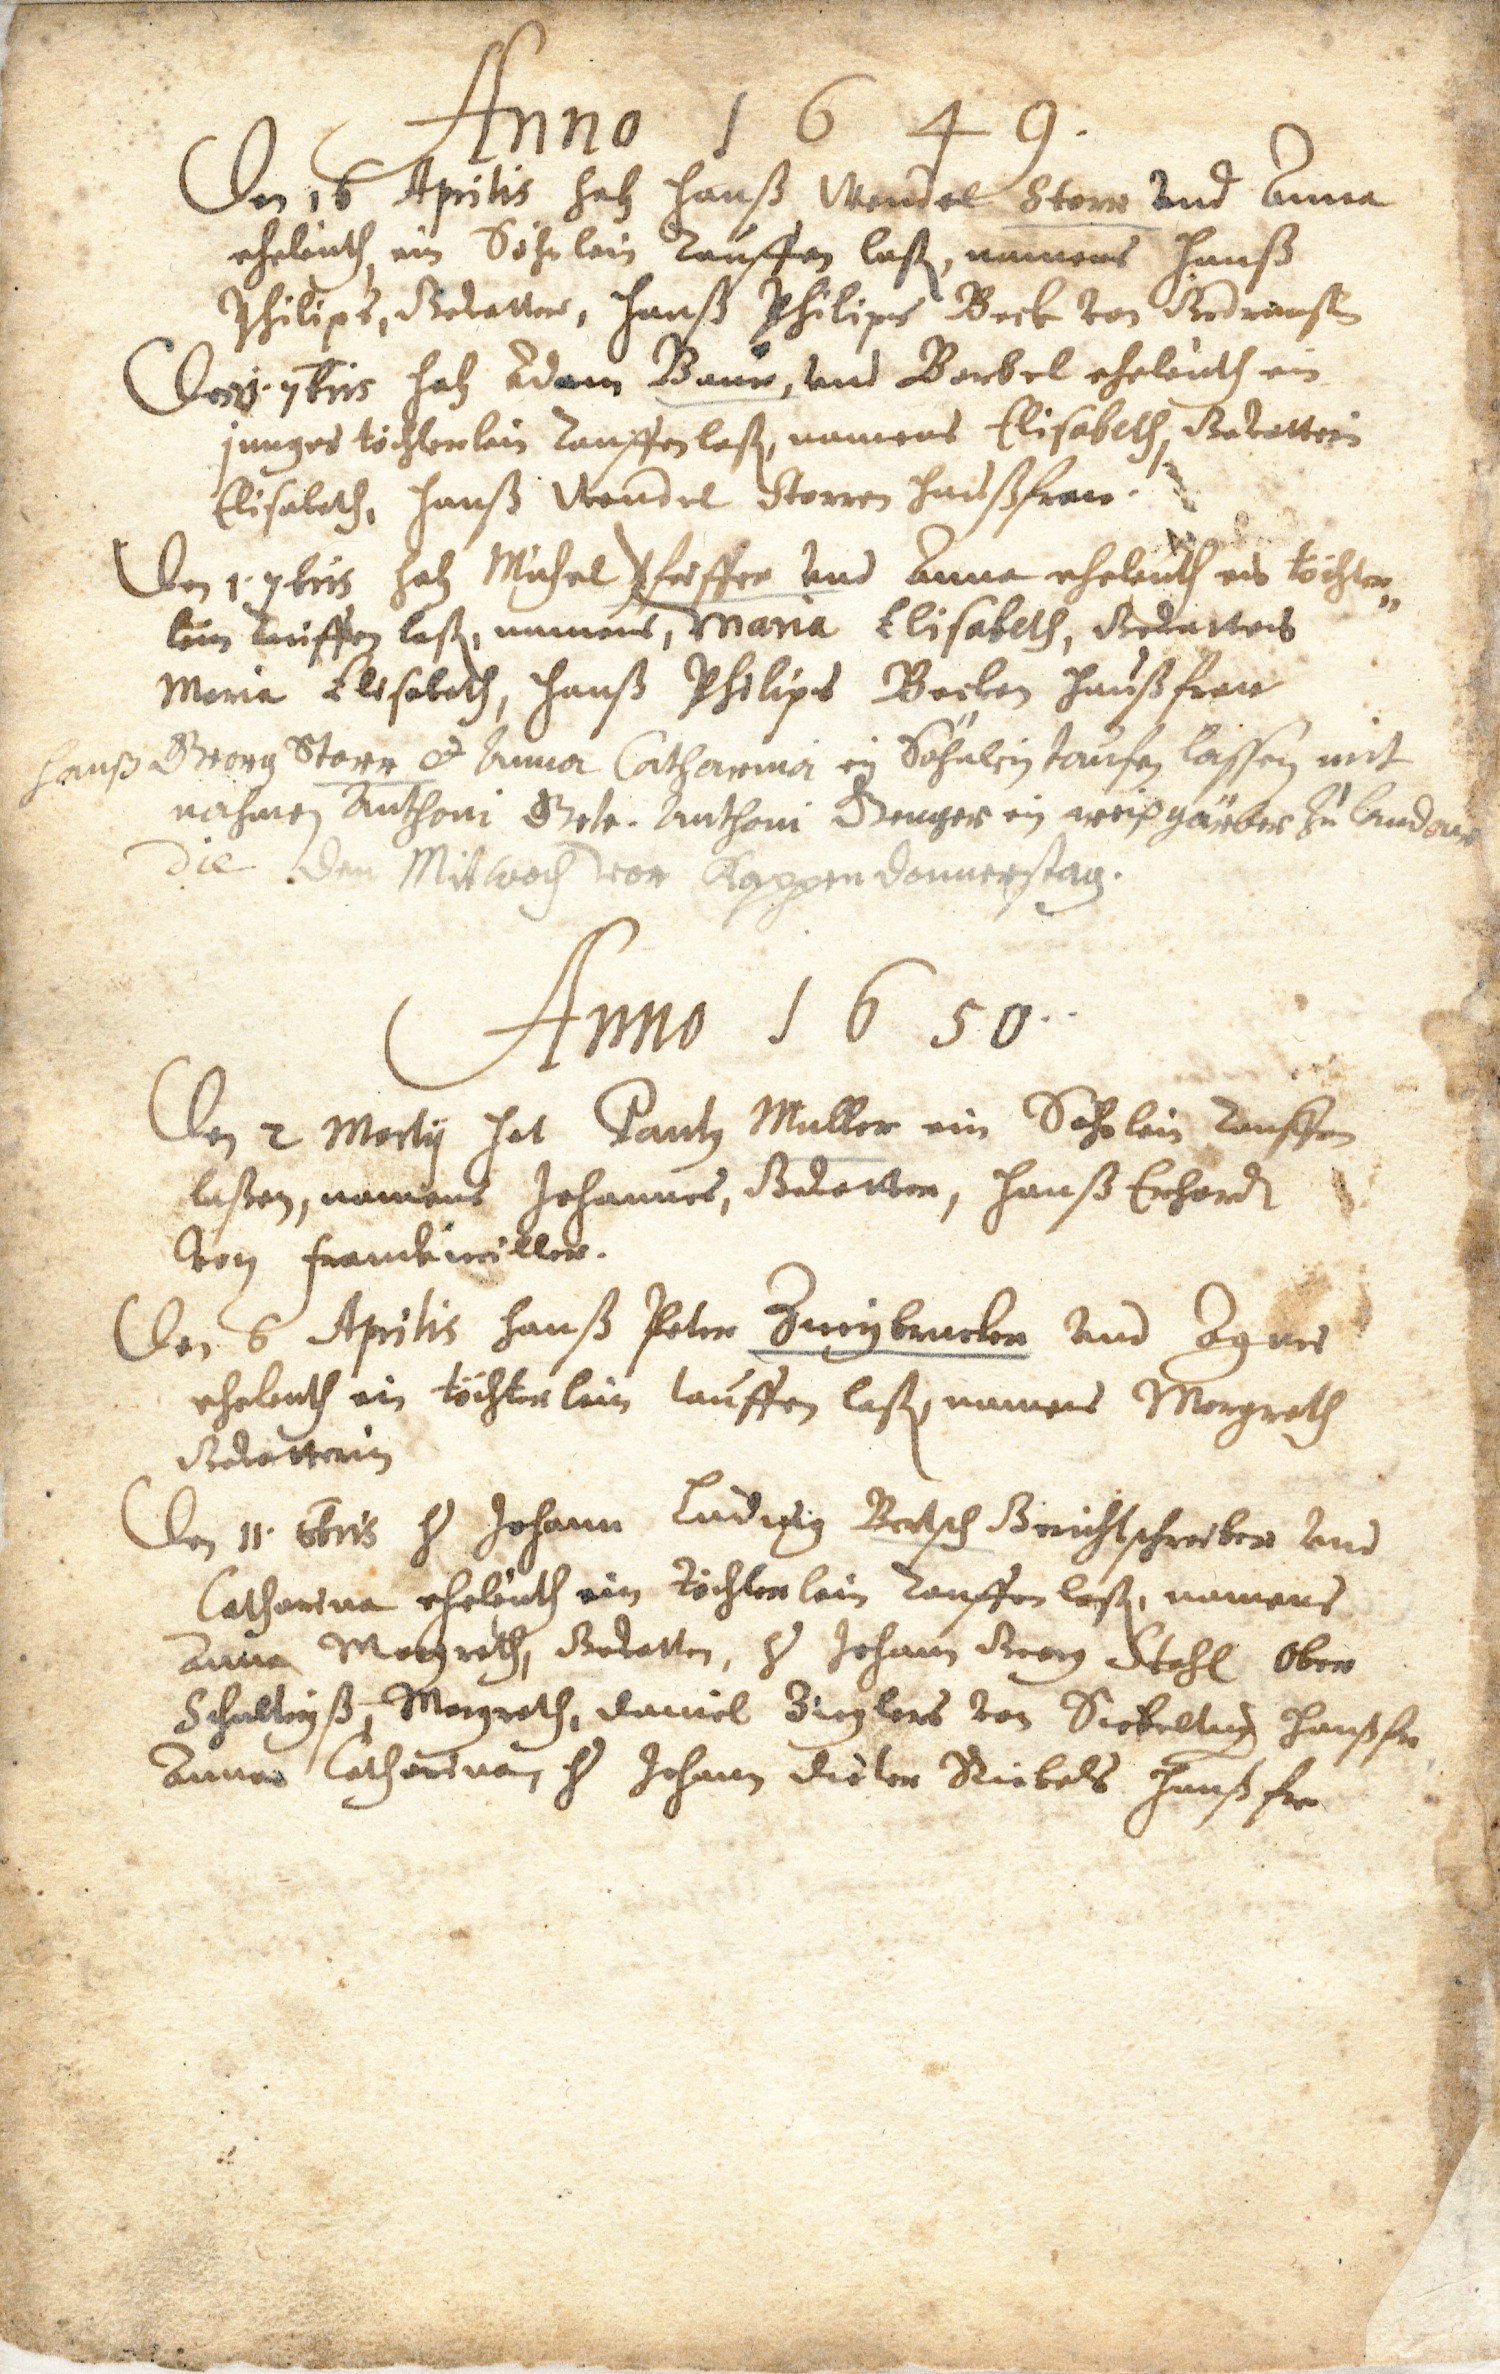 Anno 1649.
Den 16 Aprilis hatt Hanß Wendel Storr und Anna
eheleuth, ein Söhnlein tauffen laßen, namens Hanß
Philips, Gevatter, Hanß Philips Beck von
Den 1. 7bris hatt Adam Baur, und Barbel eheleuth ein
junges töchterlein tauffen laßen, namens Elisabeth, Gevatterin
Elisabeth, Hanß Wendel Storren Haußfraw.
Den 1. 7bris hatt Michel Pfeiffer und Anna eheleuth ein töchter„
lein tauffen laßen, namens, Maria Elisabeth, Gevatterin
Maria Elisabeth, Hanß Philips Becken Haußfraw
Hanß Georg Storr & Anna Catharina ein Söhnlein taufen lassen mit
nahmen Anthoni Gete. Anthoni Wenger ein weißgärber zu Landaw
Die den Mitwoch vor Kappendonnerstag.
Anno 1650..
Den 2 Martij hat Pantz Müller ein Söhnlein tauffen
laßen, namens Johannes, Gevatter, Hanß Erhard
von Franckweiller.
Den 6 Aprilis Hanß Peter Zweybrucker und Agnes
eheleuth ein töchterlein tauffen laßen, namens Margreth
Gevatterin
Den 11. 8bris H Johann Ludwig Bertsch Gerichtschreiber und
Catharina eheleuth ein töchterlein tauffen laßen, namens
Anna Margreth, Gevatter, H Johann Georg Stahl Ober
Schultheiß, Margreth, Daniel Zieglers von Siebelting Haußfr
Anna Catharina, H Johann Dieter Kiebels Haußfr